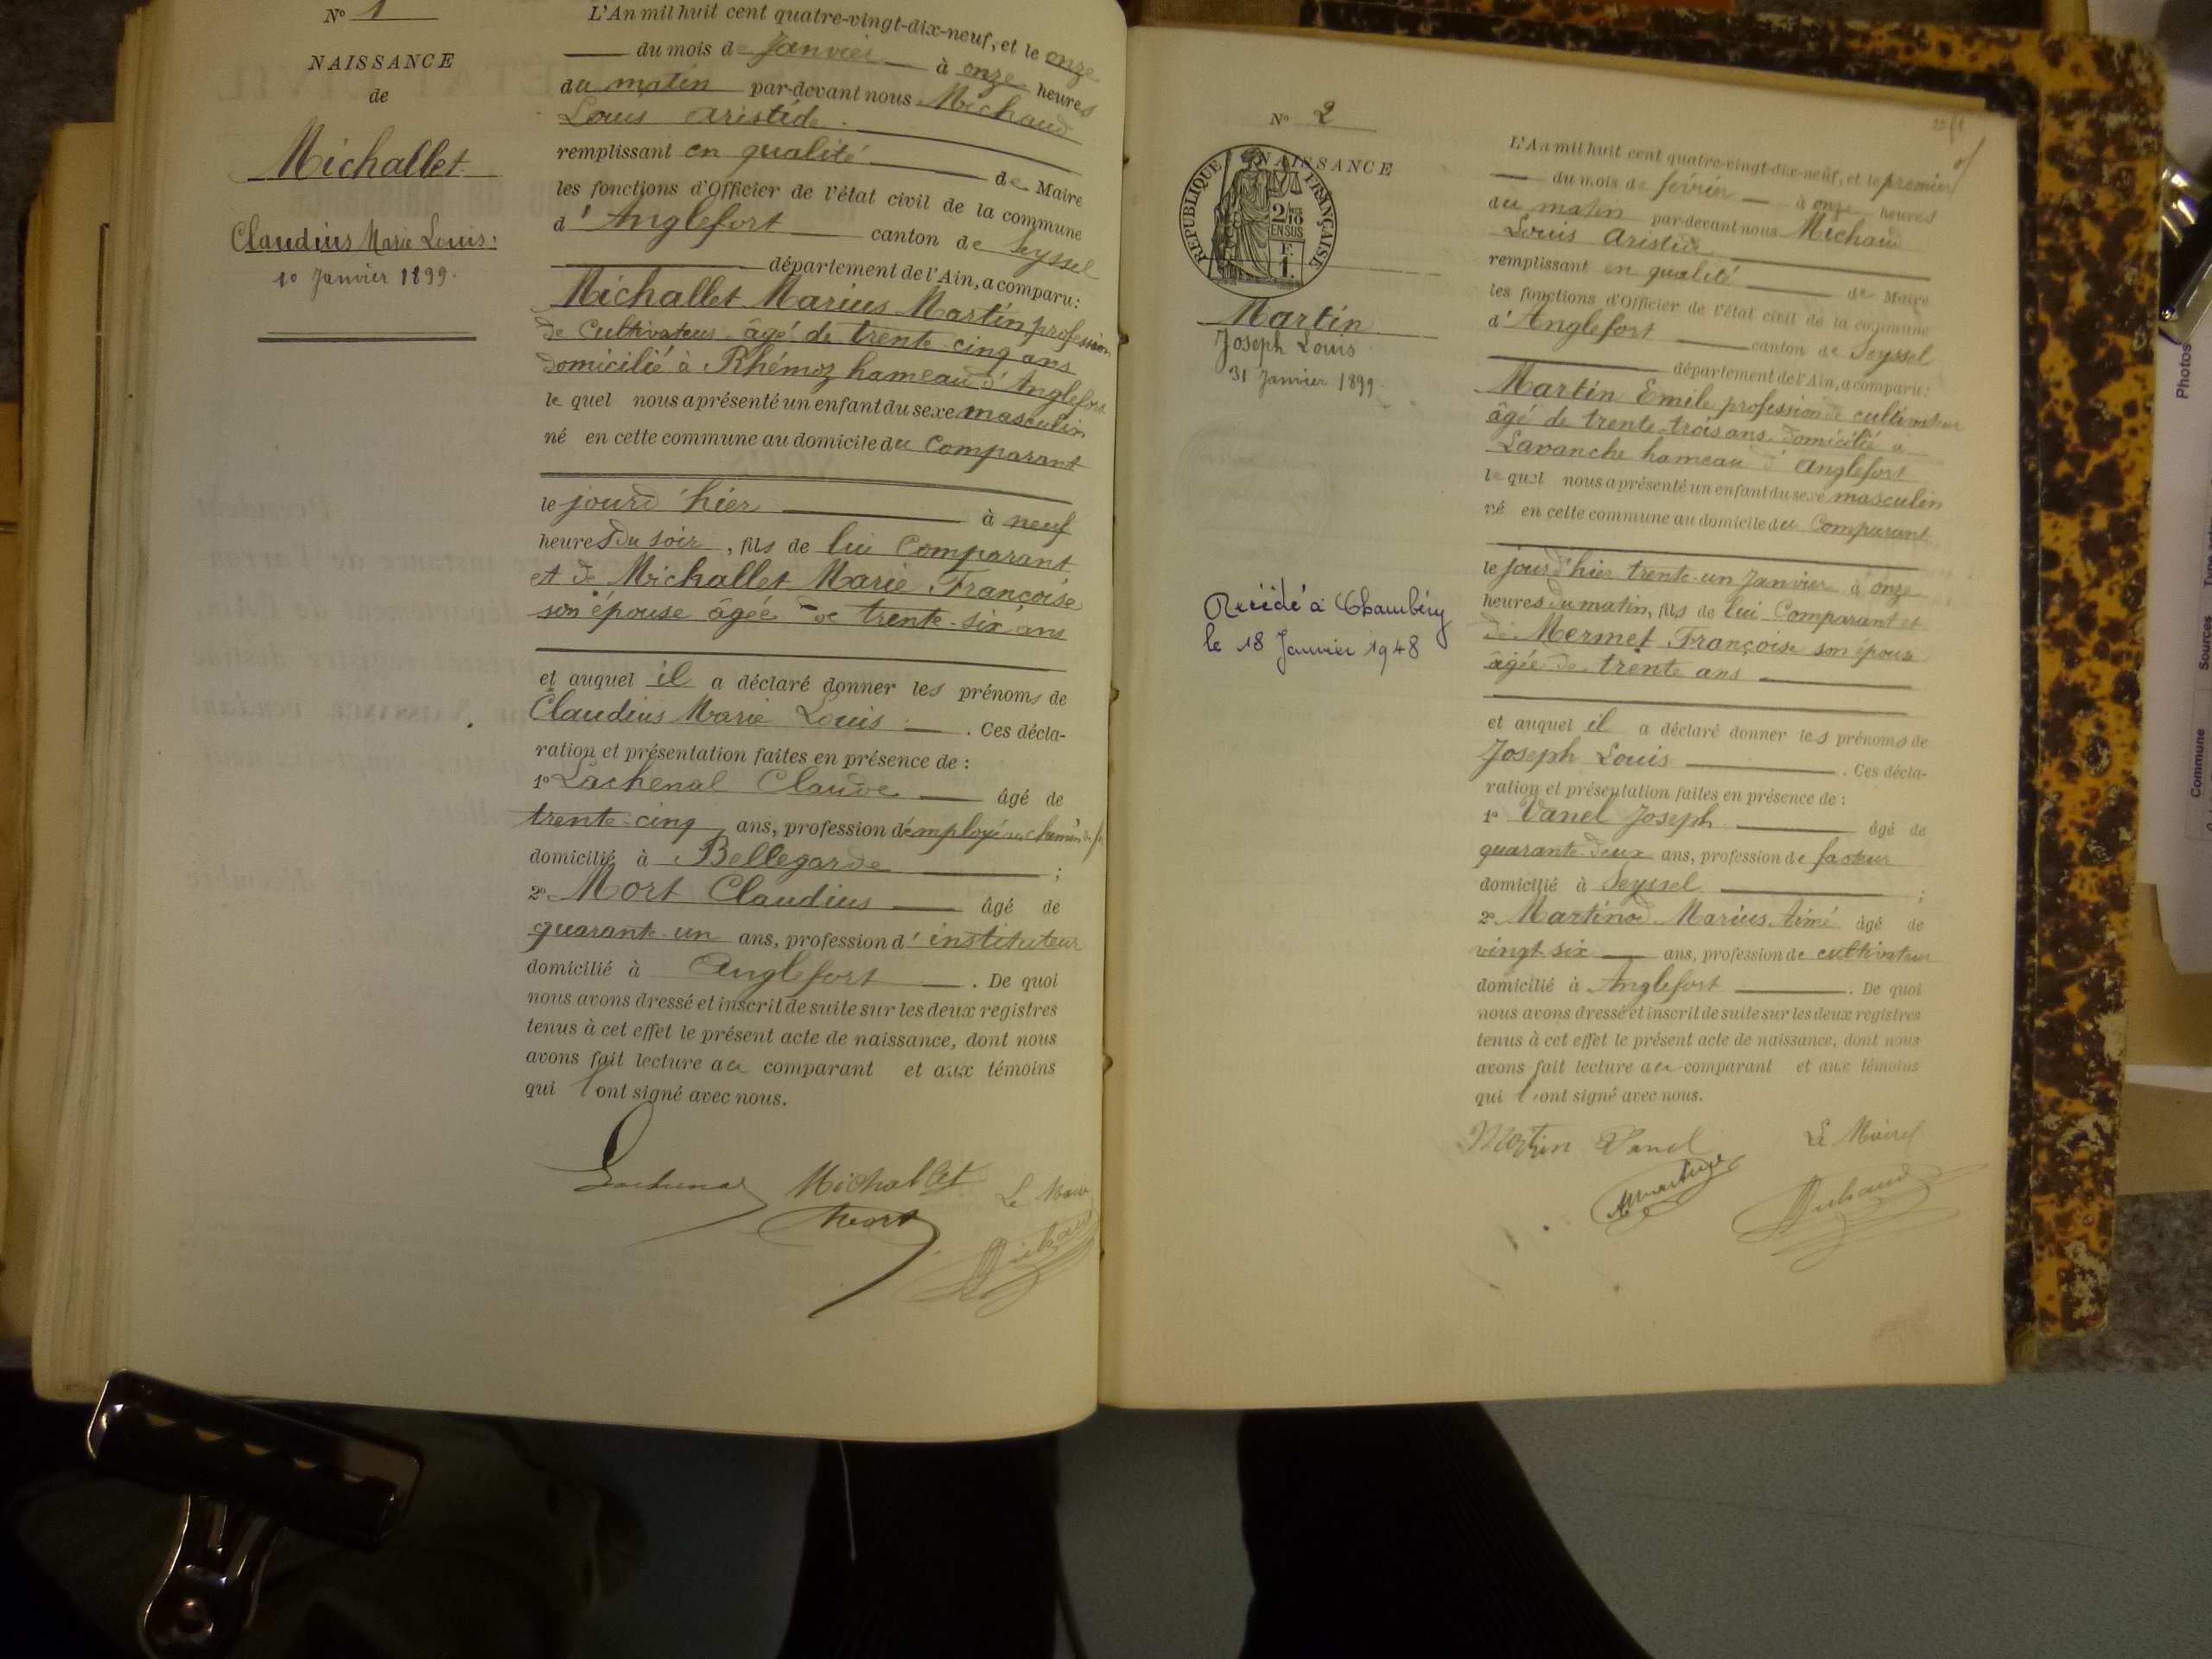 N° 1
NAISSANCE
de
Michallet
Claudius Marie Louis.
10 Janvier 1899.
L'An mil huit cent quatre-vingt-dix-neuf, et le onze
du mois de Janvier à onze heures
du matin par-devant nous Michaud
Louis Aristide.
remplissant en qualité de Maire
les fonctions d'Officier de l'état civil de la commune
d'Anglefort canton de Seyssel
département de l'Ain, a comparu:
Michallet Marius Martin profession
de cultivateur âgé de trente-cinq ans
domicilié à Rhémoz hameau d'Anglefort
le quel nous a présenté un enfant du sexe masculin
né en cette commune au domicile du Comparant
le jour d'hier à neuf
heures du soir, fils de lui Comparant
et de Michallet Marie Françoise
son épouse âgée de trente-six ans
et auquel il a déclaré donner les prénoms de
Claudius Marie Louis. Ces décla-
ration et présentation faites en présence de :
1° Lachenal Claude âgé de
trente-cinq ans, profession d'employé au chemin de f
domicilié à Bellegarde ;
2° Mort Claudius âgé de
quarante-un ans, profession d'instituteur
domicilié à Anglefort. De quoi
nous avons dressé et inscrit de suite sur les deux registres
tenus à cet effet le présent acte de naissance, dont nous
avons fait lecture au comparant et aux témoins
qui l'ont signé avec nous.
Lachenal Michallet Le Maire
Mort Michaud
N° 2
NAISSANCE
RÉPUBLIQUE FRANÇAISE
2/10
EN SUS
F.
1.
Martin
Joseph Louis
31 Janvier 1899
Décédé à Chambéry
le 18 Janvier 1948
L'An mil huit cent quatre-vingt-dix-neuf, et le premier
du mois de février à onze heures
du matin par-devant nous Michaud
Louis Aristide
remplissant en qualité de Maire
les fonctions d'Officier de l'état civil de la commune
d'Anglefort canton de Seyssel
département de l'Ain, a comparu:
Martin Emile profession de cultivateur
âgé de trente-trois ans domicilié à
Lavanche hameau d'Anglefort
le quel nous a présenté un enfant du sexe masculin
né en cette commune au domicile du Comparant
le jour d'hier trente-un Janvier à onze
heures du matin, fils de lui Comparant et
de Mermet Françoise son épouse
âgée de trente ans
et auquel il a déclaré donner les prénoms de
Joseph Louis. Ces décla-
ration et présentation faites en présence de :
1° Vanel Joseph âgé de
quarante-deux ans, profession de facteur
domicilié à Seyssel ;
2° Martinod Marius Aimé âgé de
vingt-six ans, profession de cultivateur
domicilié à Anglefort. De quoi
nous avons dressé et inscrit de suite sur les deux registres
tenus à cet effet le présent acte de naissance, dont nous
avons fait lecture au comparant et aux témoins
qui l'ont signé avec nous.
Martin Vanel Le Maire
Michaud
Photos
Sources
Commune